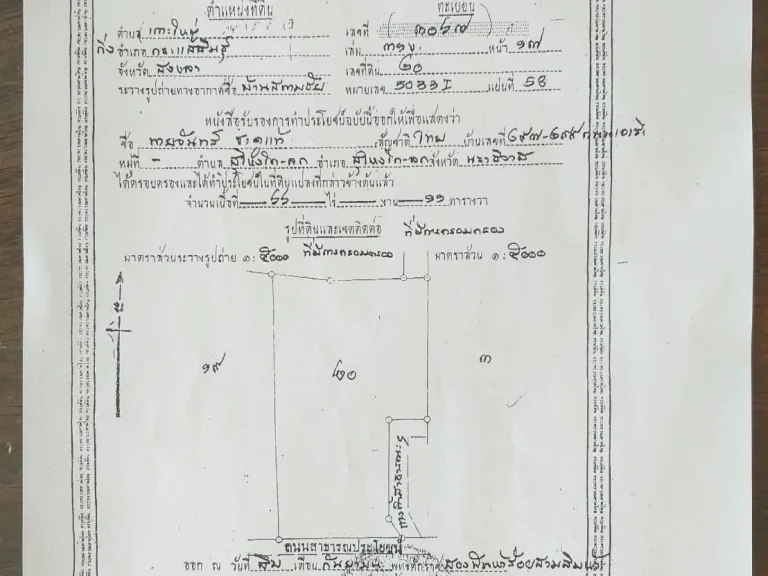 ตำแหน่งที่ดิน ทะเบียน
ตำบล เกาะใหญ่ เลขที่
กิ่งอำเภอ กระแสสินธุ์ เล่ม ๓๑ข. หน้า ๑๗
จังหวัด สงขลา เลขที่ดิน ๒๐
ระวางรูปถ่ายทางอากาศชื่อ บ้านสนามชัย หมายเลข 5033 I แผ่นที่ 58
หนังสือรับรองการทำประโยชน์ฉบับนี้ออกให้เพื่อแสดงว่า
ชื่อ สัญชาติ ไทย บ้านเลขที่
หมู่ที่ - ตำบล สุไหงโก-ลก อำเภอ สุไหงโก-ลก จังหวัด นราธิวาส
ได้ครอบครองและได้ทำประโยชน์ในที่ดินแปลงที่กล่าวข้างต้นแล้ว
จำนวนเนื้อที่ ๖๖ ไร่ - งาน ๑๑ ตารางวา
รูปที่ดินและเขตติดต่อ
ที่มีการครอบครอง
ที่มีการครอบครอง
มาตราส่วนระวางรูปถ่าย ๑: ๕๐๐๐ มาตราส่วน ๑: ๕๐๐๐
น
๑๙ ๒๐ ๓
ทางสาธารณะ
ถนนสาธารณประโยชน์
ออก ณ วันที่ สิบ เดือน กันยายน พุทธศักราช